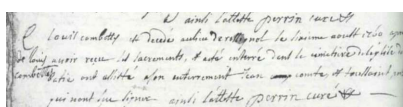 ainsi l'atteste perrin curé
Louis combettes est decedé au lieu de le seizieme aoust 1760 apres
de louis avoir reçu les sacrements, et a été enterré dans le cimetiere de l'eglise
combettes ont assisté a son enterrement jean comte et toussaint
qui n'ont sçu signer ainsi l'atteste perrin curé